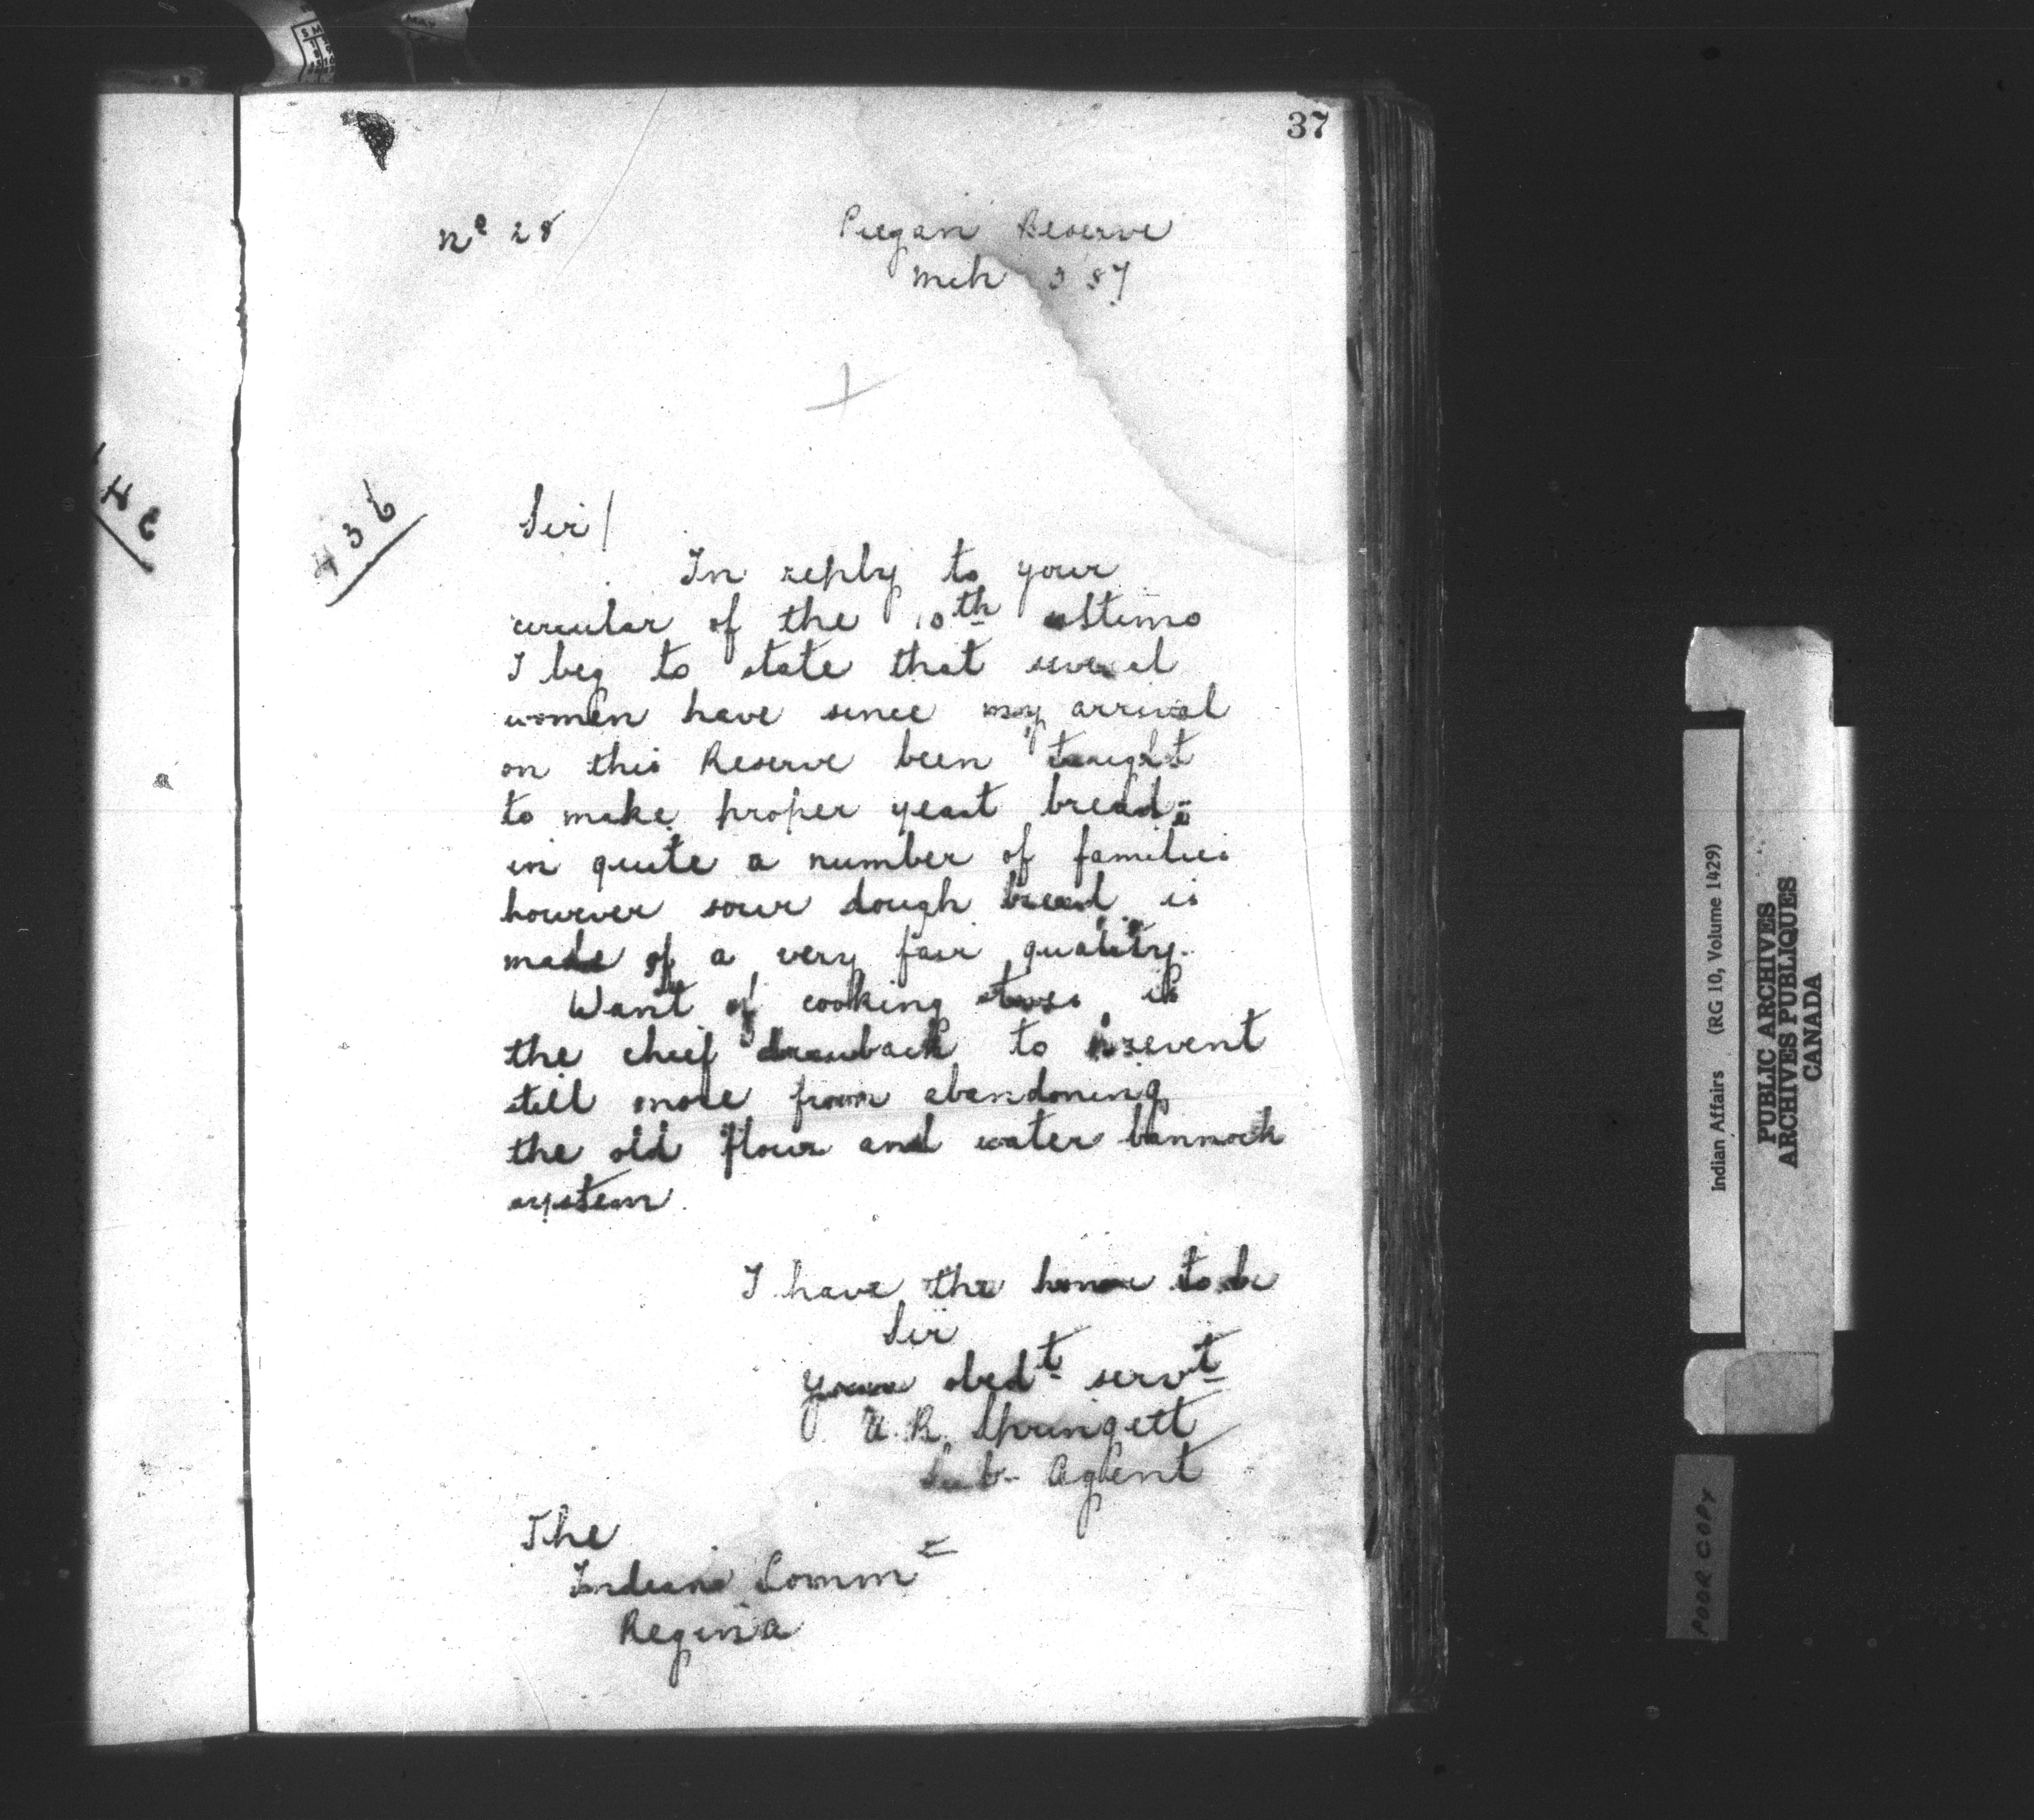 37
No 28
Piegan Reserve
Mch 3 87
436
Sir/
In reply to your
circular of the 10th ultimo
I beg to state that several
women have since my arrival
on this Reserve been taught
to make proper yeast bread;
in quite a number of families
however sour dough bread is
made of a very fair quality.
Want of cooking stoves is
the chief drawback to prevent
still more from abandoning
the old flour and water bannock
system.
I have the honor to be
Sir
Your obedt servt
Springett
Sub-Agent
The
Indian Commr
Regina
Indian Affairs (RG 10, Volume 1429)
PUBLIC ARCHIVES
ARCHIVES PUBLIQUES
CANADA
POOR COPY